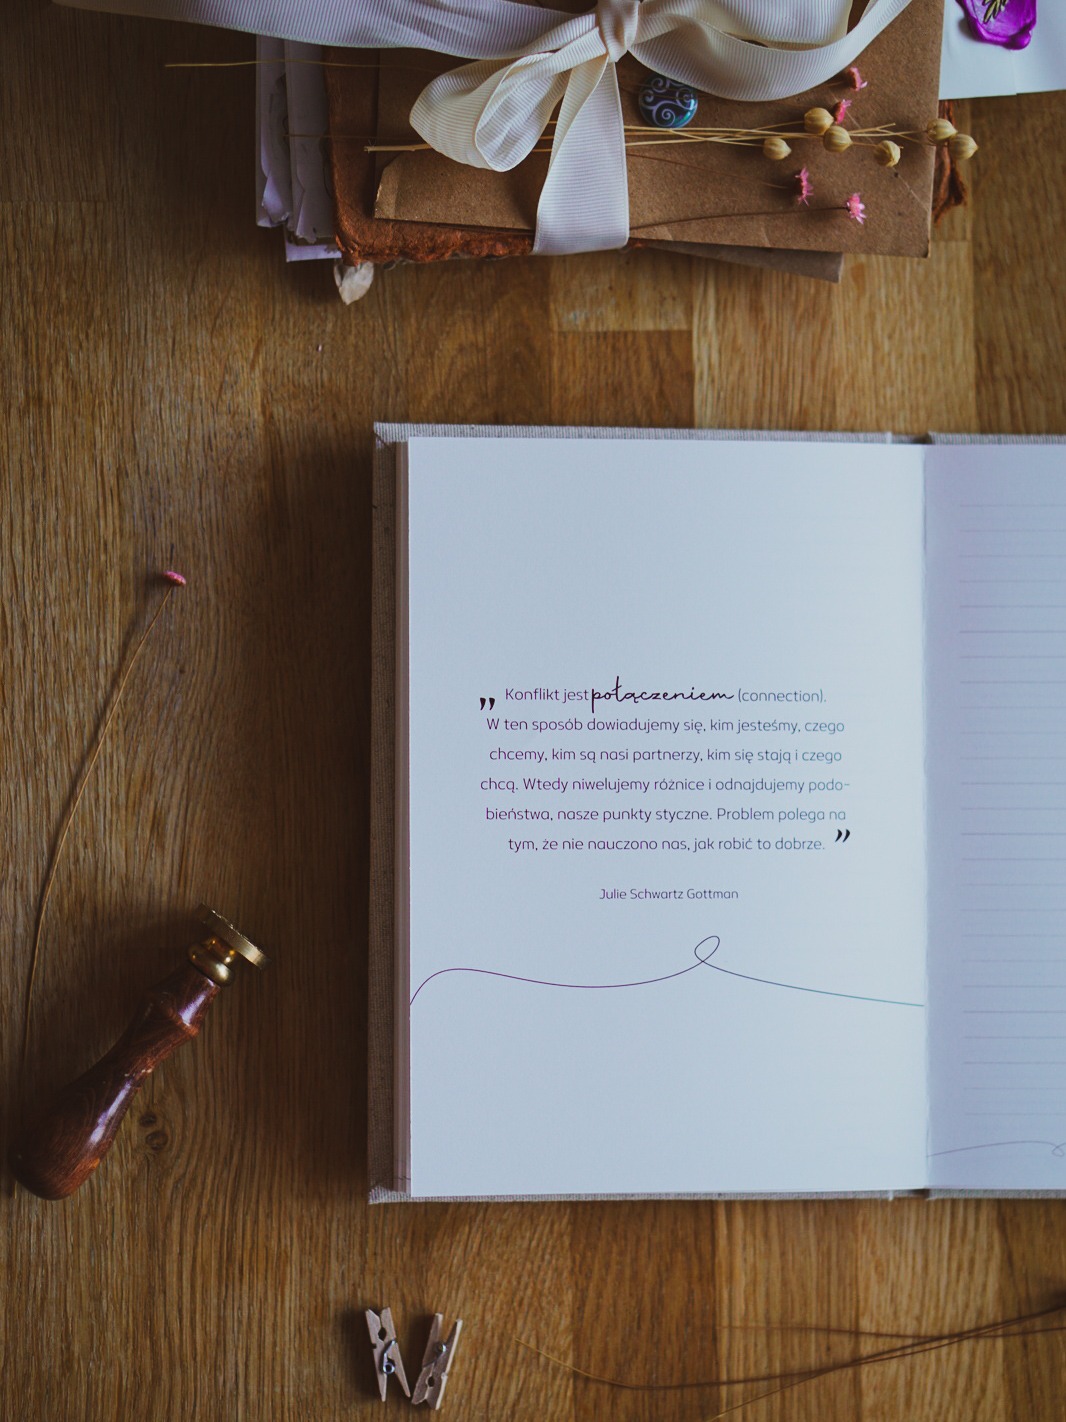 „Konflikt jest połączeniem (connection).
W ten sposób dowiadujemy się, kim jesteśmy, czego
chcemy, kim są nasi partnerzy, kim się stają i czego
chcą. Wtedy niwelujemy różnice i odnajdujemy podo-
bieństwa, nasze punkty styczne. Problem polega na
tym, że nie nauczono nas, jak robić to dobrze.”
Julie Schwartz Gottman